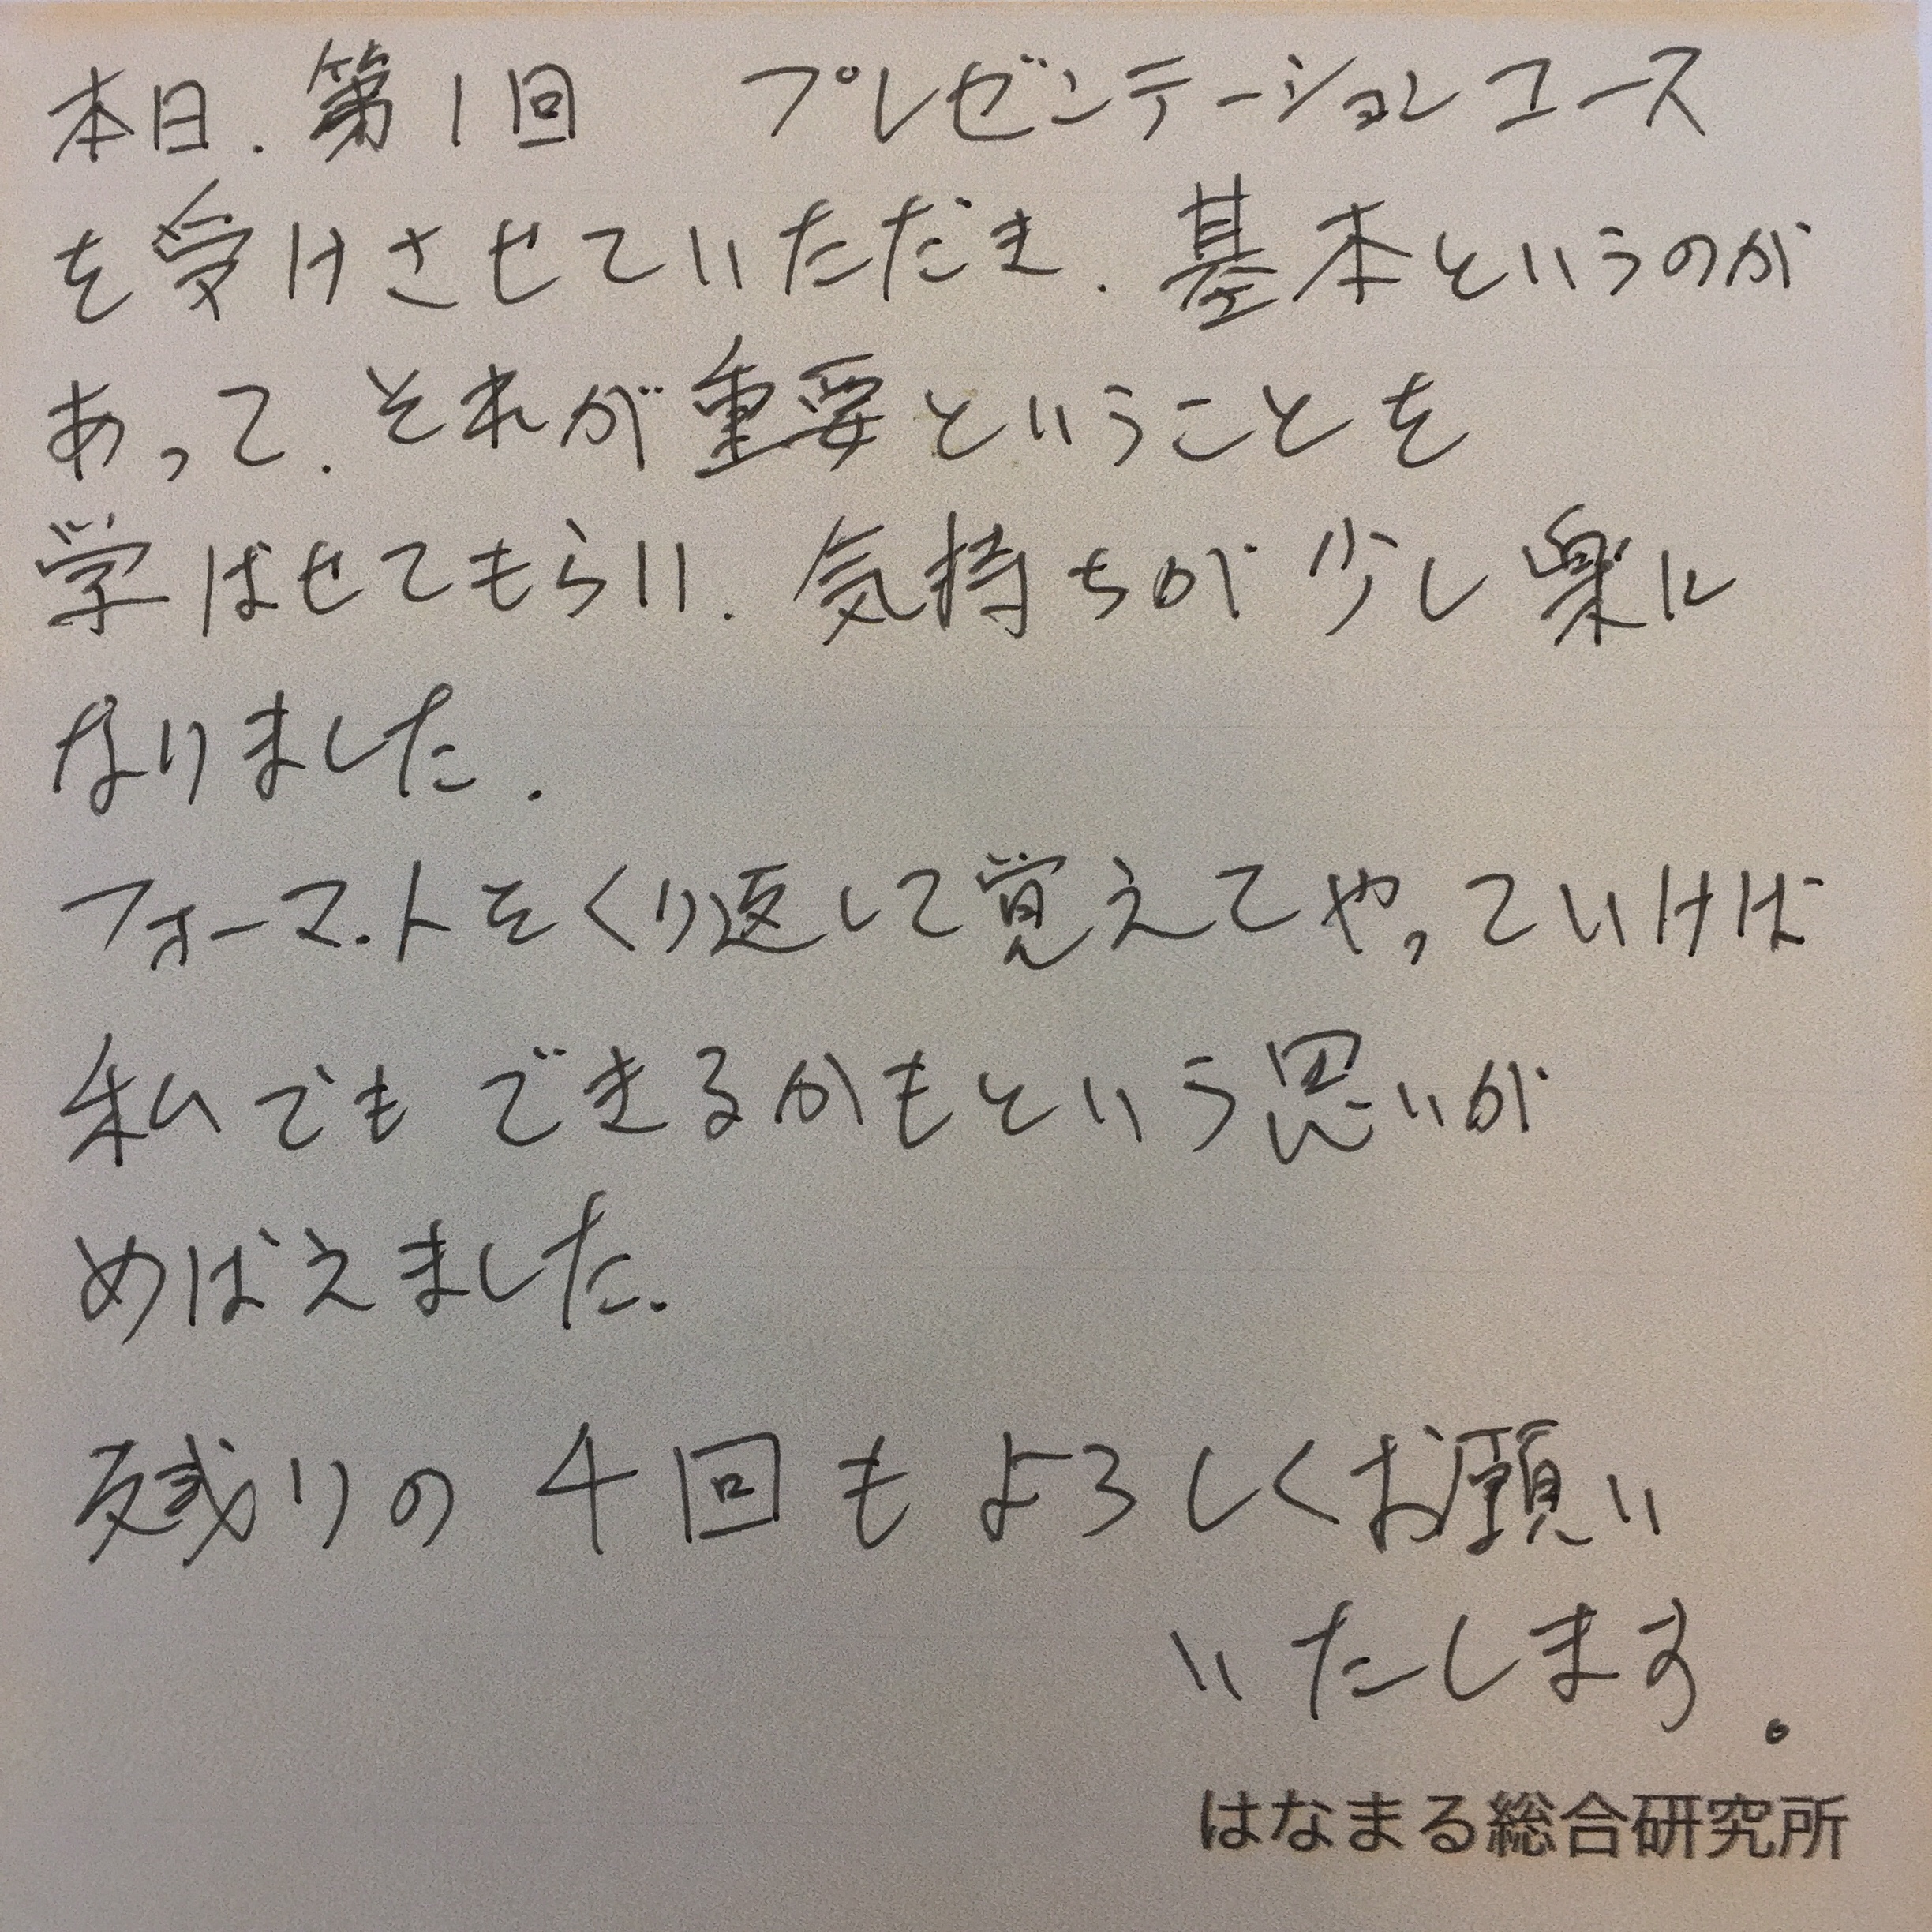 本日、第1回　プレゼンテーションコース
を受けさせていただき、基本というのが
あって、それが重要ということを
学ばせてもらい、気持ちが少し楽に
なりました。
フォーマットをくり返して覚えてやっていけば
私でも できるかもという思いが
めばえました。
残りの 4回も よろしくお願い
いたします。
はなまる総合研究所